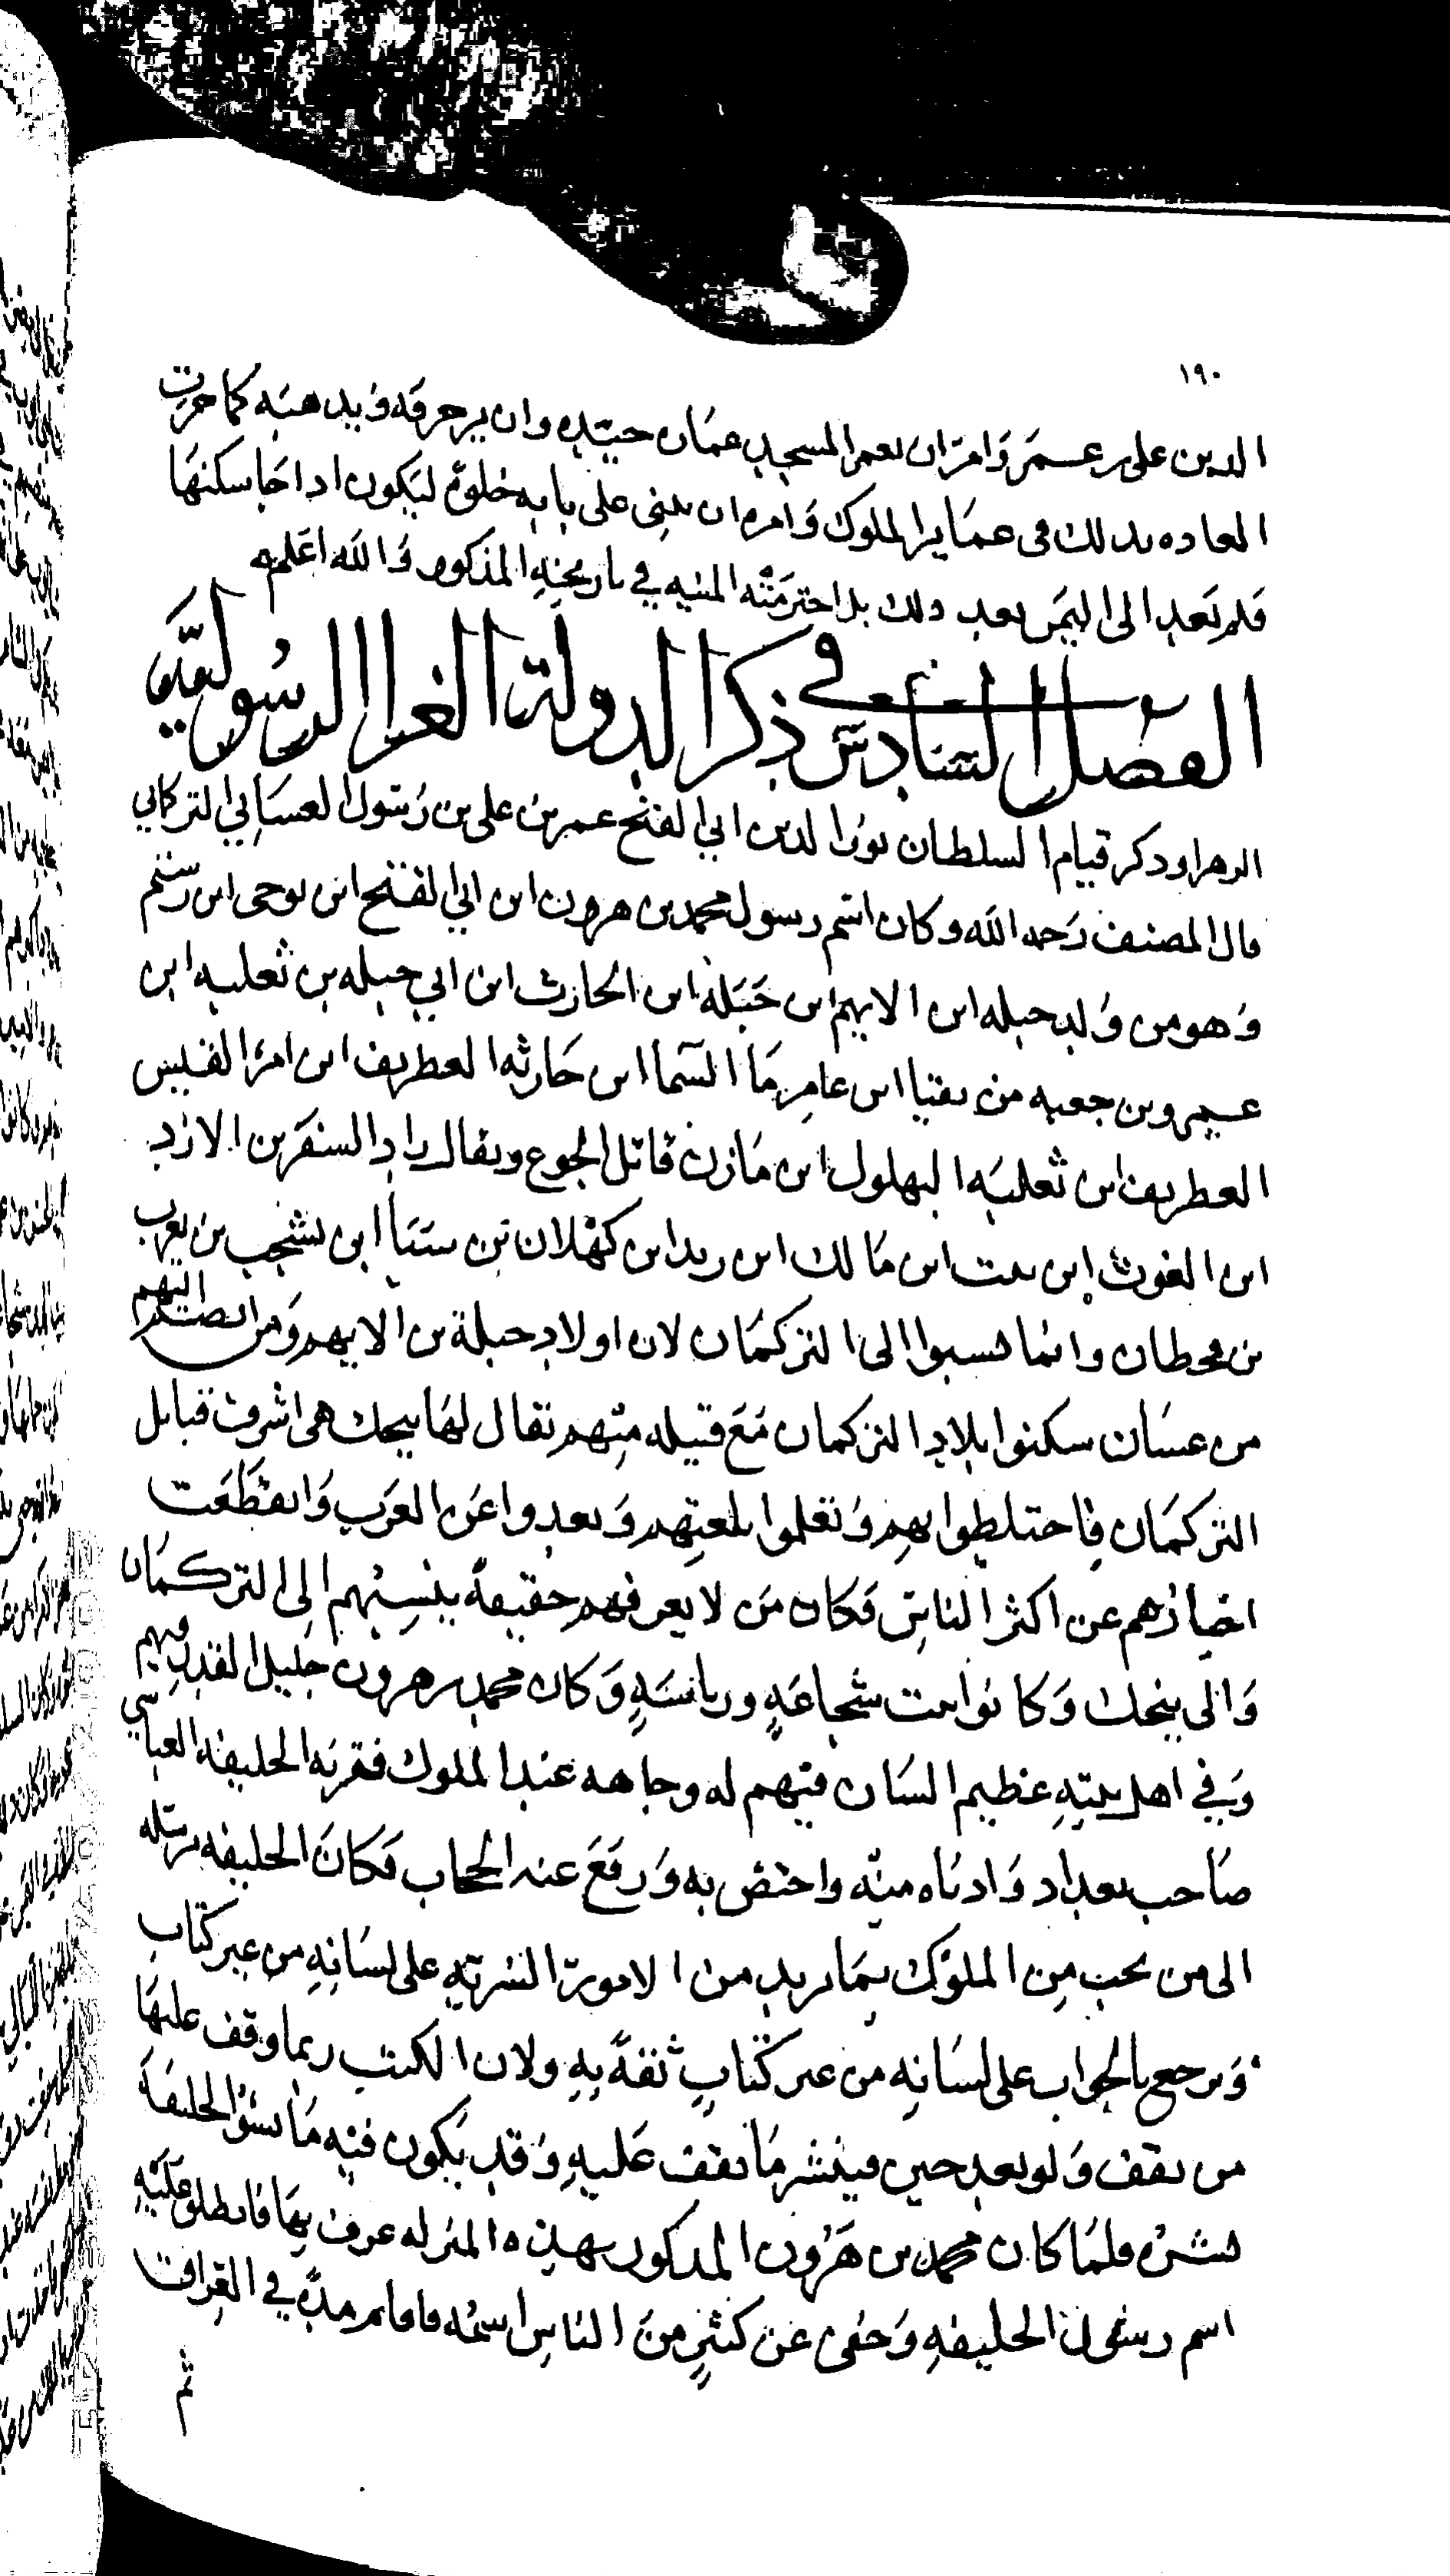 ١٩٠
الدين على بن عمر وامر ان يعمر المسجد عمان جيده وان يزخرفه ويذهبه كما جرت
العاده بذلك فى عماير الملوك وامره ان يبنى على بابه خلوة ليكون اذا جا سكنها
فلم يعد الى اليمن بعد ذلك بل اخترمته المنيه في تاريخه المذكور والله اعلم
الفصل السادس في ذكر الدولة الغرا الرسوليه
الزهرا وذكر قيام السلطان نور الدين ابي الفتح عمر بن على بن رسول الغساني التركماني
قال المصنف رحمه الله وكان اسم رسول محمد بن هرون ابن ابي الفتح ابن يوحى ابن رستم
وهو من ولد جبله ابن الايهم ابن جبلة ابن الحارث ابن ابي جبله بن ثعلبه ابن
عمرو بن جفنه من يقيا ابن عامر ما السما ابن حارثه الغطريف ابن امرا القيس
الغطريف ابن ثعلبه البهلول ابن مازن قاتل الجوع ويقال زاد السفر بن الازد
ابن الغوث ابن نبت ابن مالك ابن زيد ابن كهلان بن سبا ابن يشجب بن يعرب
بن قحطان وانما نسبوا الى التركمان لان اولاد جبلة بن الايهم ومن انضم اليهم
من غسان سكنوا بلاد التركمان مع قبيله منهم يقال لها بيجك هى اشرف قبايل
التركمان فاختلطوا بهم وتعلموا بلغتهم وبعدوا عن العرب وانقطعت
اخبارهم عن اكثر الناس فكان من لا يعرفهم حقيقة ينسبهم الى التركمان
والى بيجك وكانوا بيت شجاعه ورياسه وكان محمد بن هرون جليل القدر فيهم
وفي اهل بيته عظيم الشان فيهم له وجاهه عند الملوك فقربه الخليفه العباسي
صاحب بغداد وادناه منه واختص به ورفع عنه الحجاب فكان الخليفه يرسله
الى من يحب من الملوك بما يريد من الامور السريه على لسانه من غير كتاب
ويرجع بالجواب على لسانه من غير كتاب ثقة به ولان الكتب ربما وقف عليها
من يقف ولو بعد حين فينشر ما يقف عليه وقد يكون فيه ما يسؤ الخليفة
نشره فلما كان محمد بن هرون المذكور بهذه المنزله عرف بها فانطلق عليه
اسم رسول الخليفه وخفى عن كثير من الناس اسمه فاقام مدة في العراق
ثم